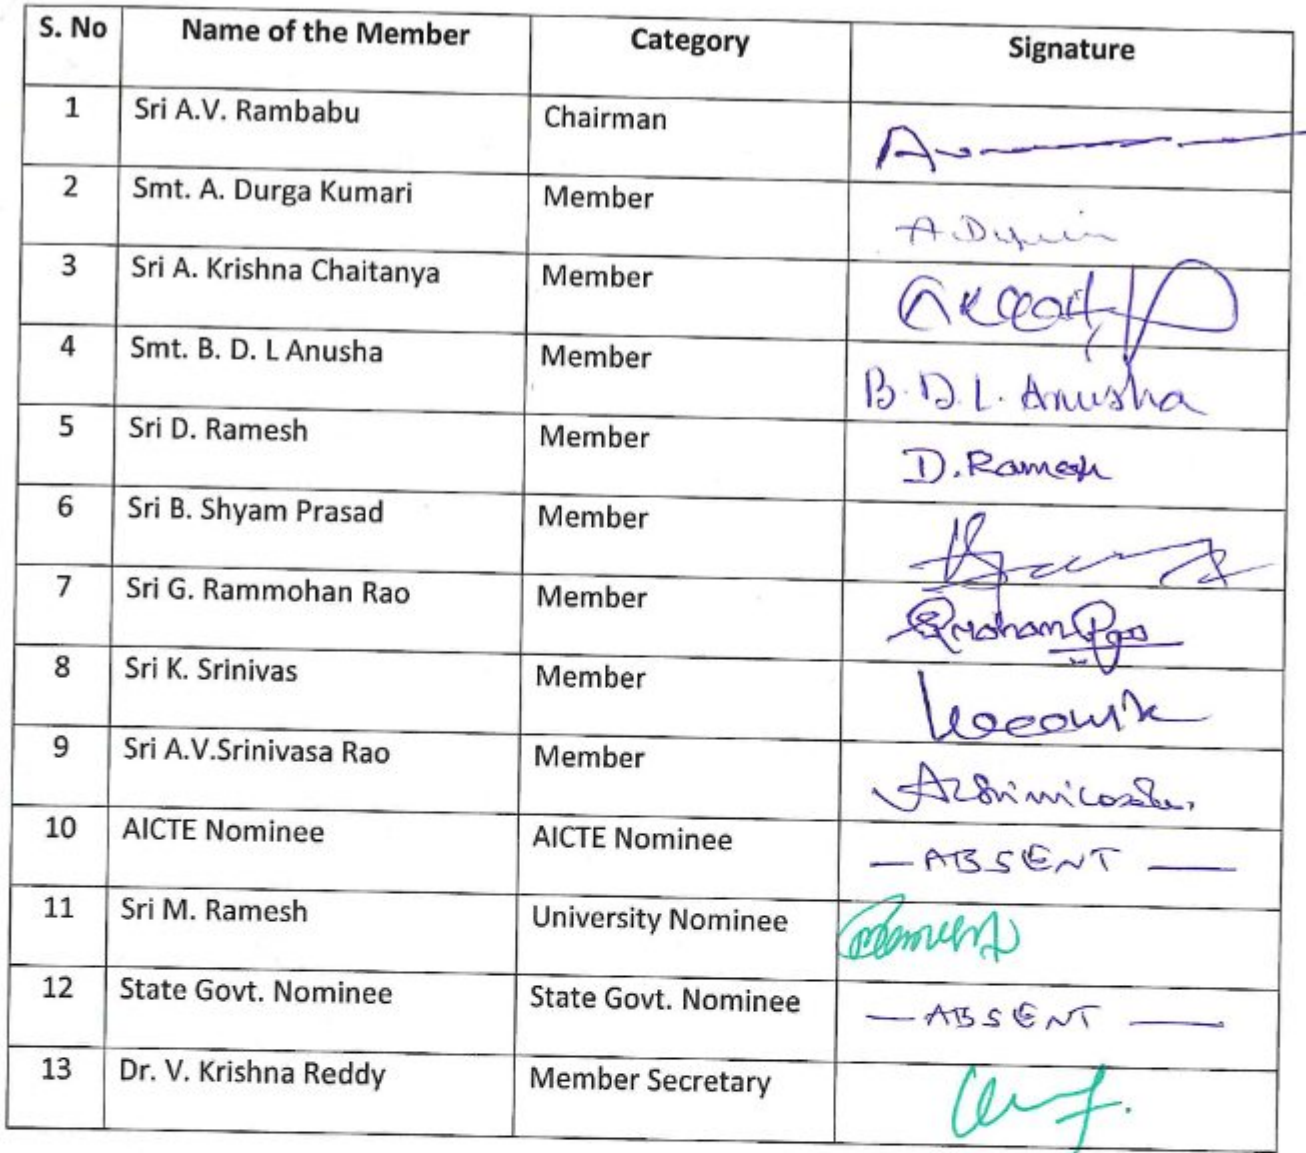 S. No Name of the Member Category Signature
1 Sri A.V. Rambabu Chairman
2 Smt. A. Durga Kumari Member
3 Sri A. Krishna Chaitanya Member
4 Smt. B. D. L Anusha Member B. D. L. Anusha
5 Sri D. Ramesh Member D. Ramesh
6 Sri B. Shyam Prasad Member
7 Sri G. Rammohan Rao Member
8 Sri K. Srinivas Member
9 Sri A.V.Srinivasa Rao Member
10 AICTE Nominee AICTE Nominee — ABSENT —
11 Sri M. Ramesh University Nominee
12 State Govt. Nominee State Govt. Nominee — ABSENT —
13 Dr. V. Krishna Reddy Member Secretary